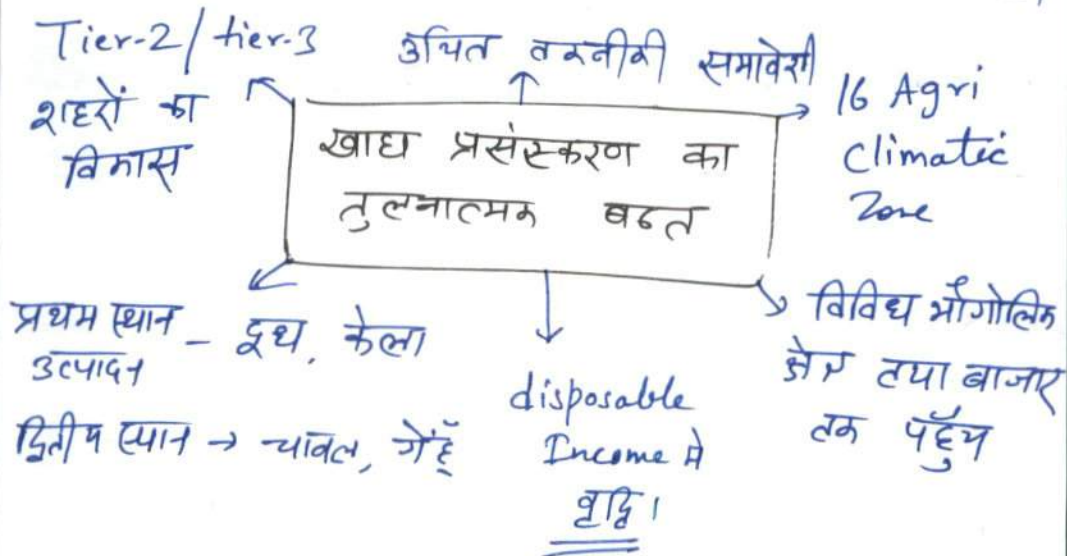 Tier-2/ tier-3
शहरों का
विकास
उचित तकनीकी समावेशी
16 Agri
Climatic
Zone
खाद्य प्रसंस्करण का
तुलनात्मक बढत
प्रथम स्थान - दूध, केला
उत्पादन
द्वितीय स्थान → चावल, गेहूँ
disposable
Income मे
वृद्धि।
विविध भौगोलिक
क्षेत्र तथा बाजार
तक पहुँच